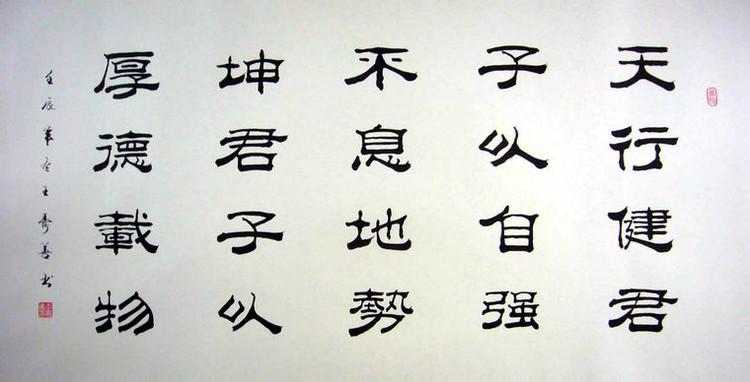 天行健君
子以自强
不息地勢
坤君子以
厚德載物
壬辰王善书